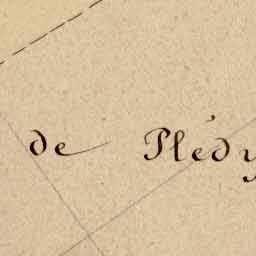 de Plédy